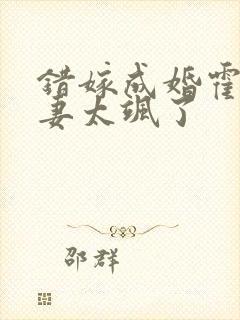 错嫁成婚霍
妻太飒了
邵群